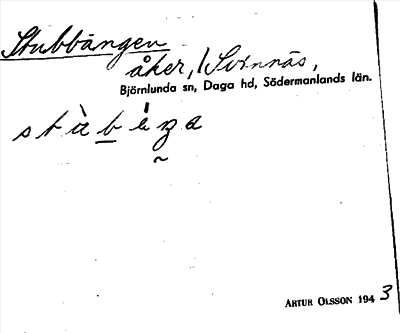 Stubbängen
åker, / Svinnäs,
Björnlunda sn, Daga hd, Södermanlands län.
ARTUR OLSSON 1943